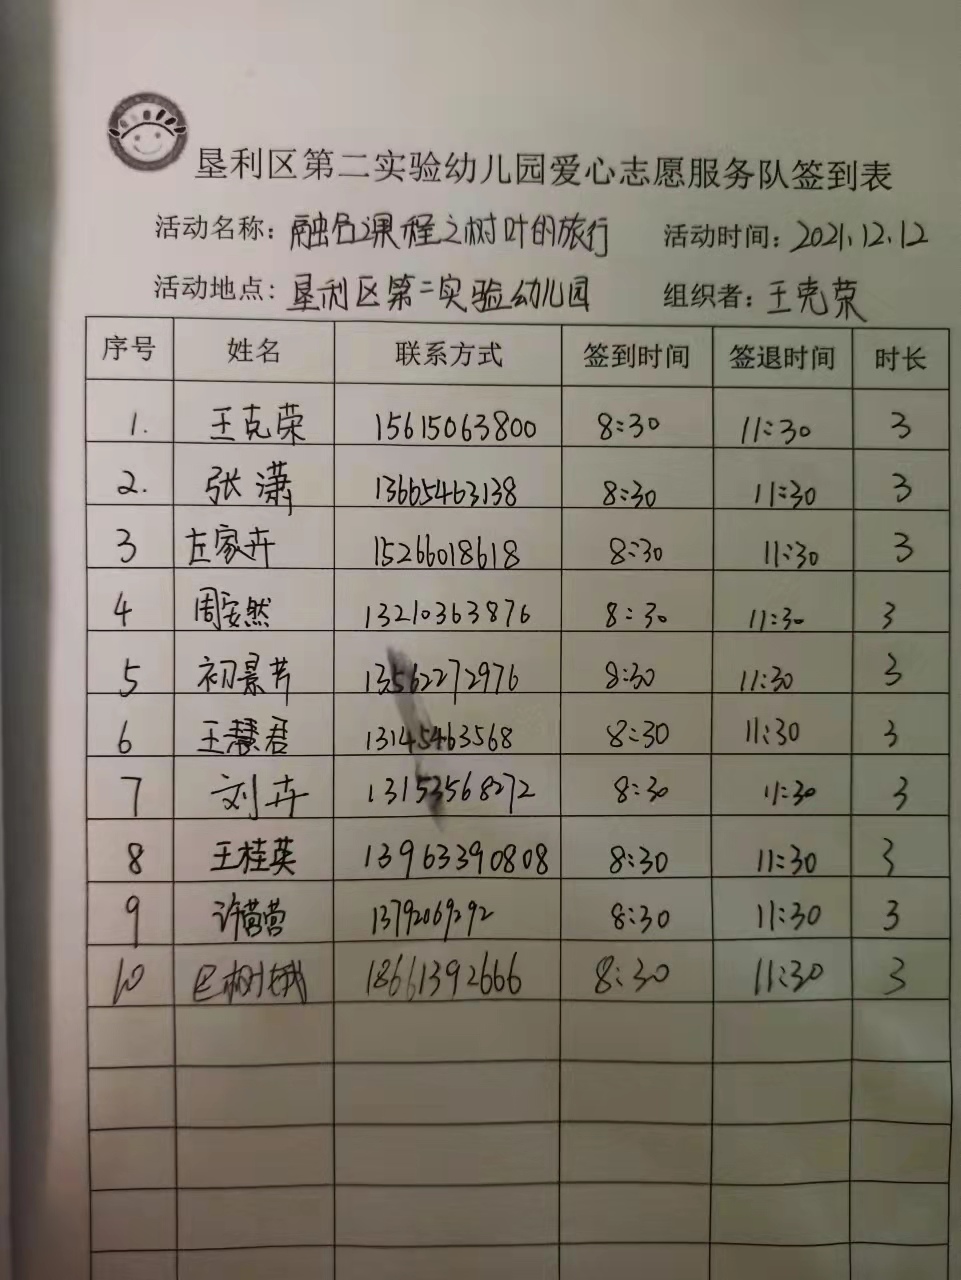 垦利区第二实验幼儿园爱心志愿服务队签到表
活动名称：融合课程之树叶的旅行 活动时间：2021.12.12
活动地点：垦利区第二实验幼儿园 组织者：王克荣
序号 姓名 联系方式 签到时间 签退时间 时长
1. 王克荣 15615063800 8:30 11:30 3
2. 张潇 13665463138 8:30 11:30 3
3 左家卉 15266018618 8:30 11:30 3
4 周安然 13210363876 8:30 11:30 3
5 初景芳 13562272976 8:30 11:30 3
6 王慧君 13145463568 8:30 11:30 3
7 刘卉 13153568272 8:30 11:30 3
8 王桂英 13963390808 8:30 11:30 3
9 许营营 13792069292 8:30 11:30 3
10 18661392666 8:30 11:30 3